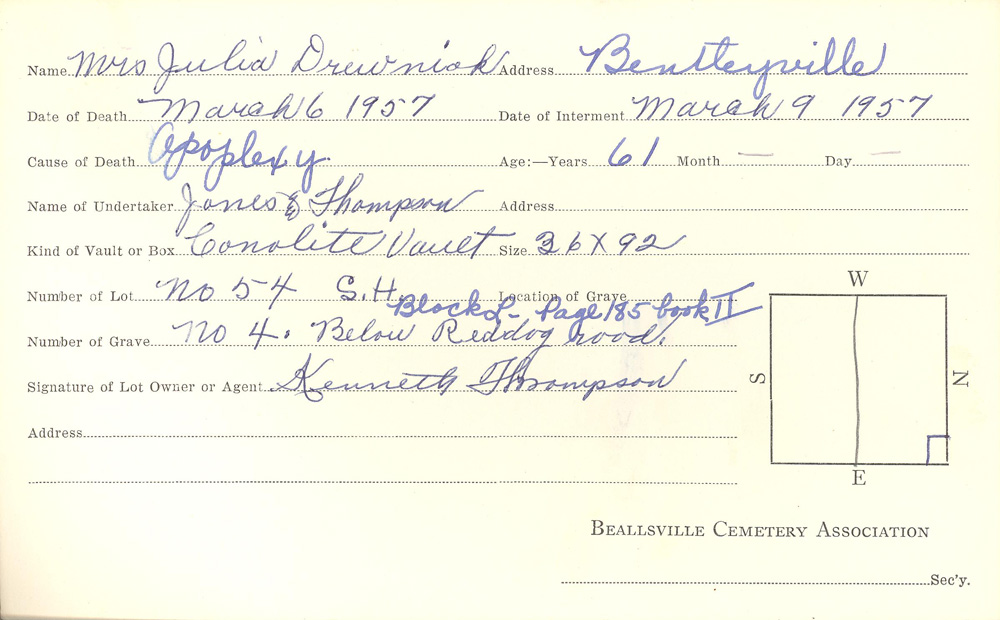 Name Mrs Julia Drewniak Address Bentleyville
Date of Death March 6 1957 Date of Interment March 9 1957
Cause of Death Apoplexy Age:—Years 61 Month — Day —
Name of Undertaker Jones & Thompson Address
Kind of Vault or Box Conolite Vault Size 36 X 92
Number of Lot No 54 S.H. Location of Grave
Block L- Page 185 book II
Number of Grave No 4. Below Reddog road.
Signature of Lot Owner or Agent Kenneth Thompson
Address
W
S
N
E
Beallsville Cemetery Association
Sec'y.